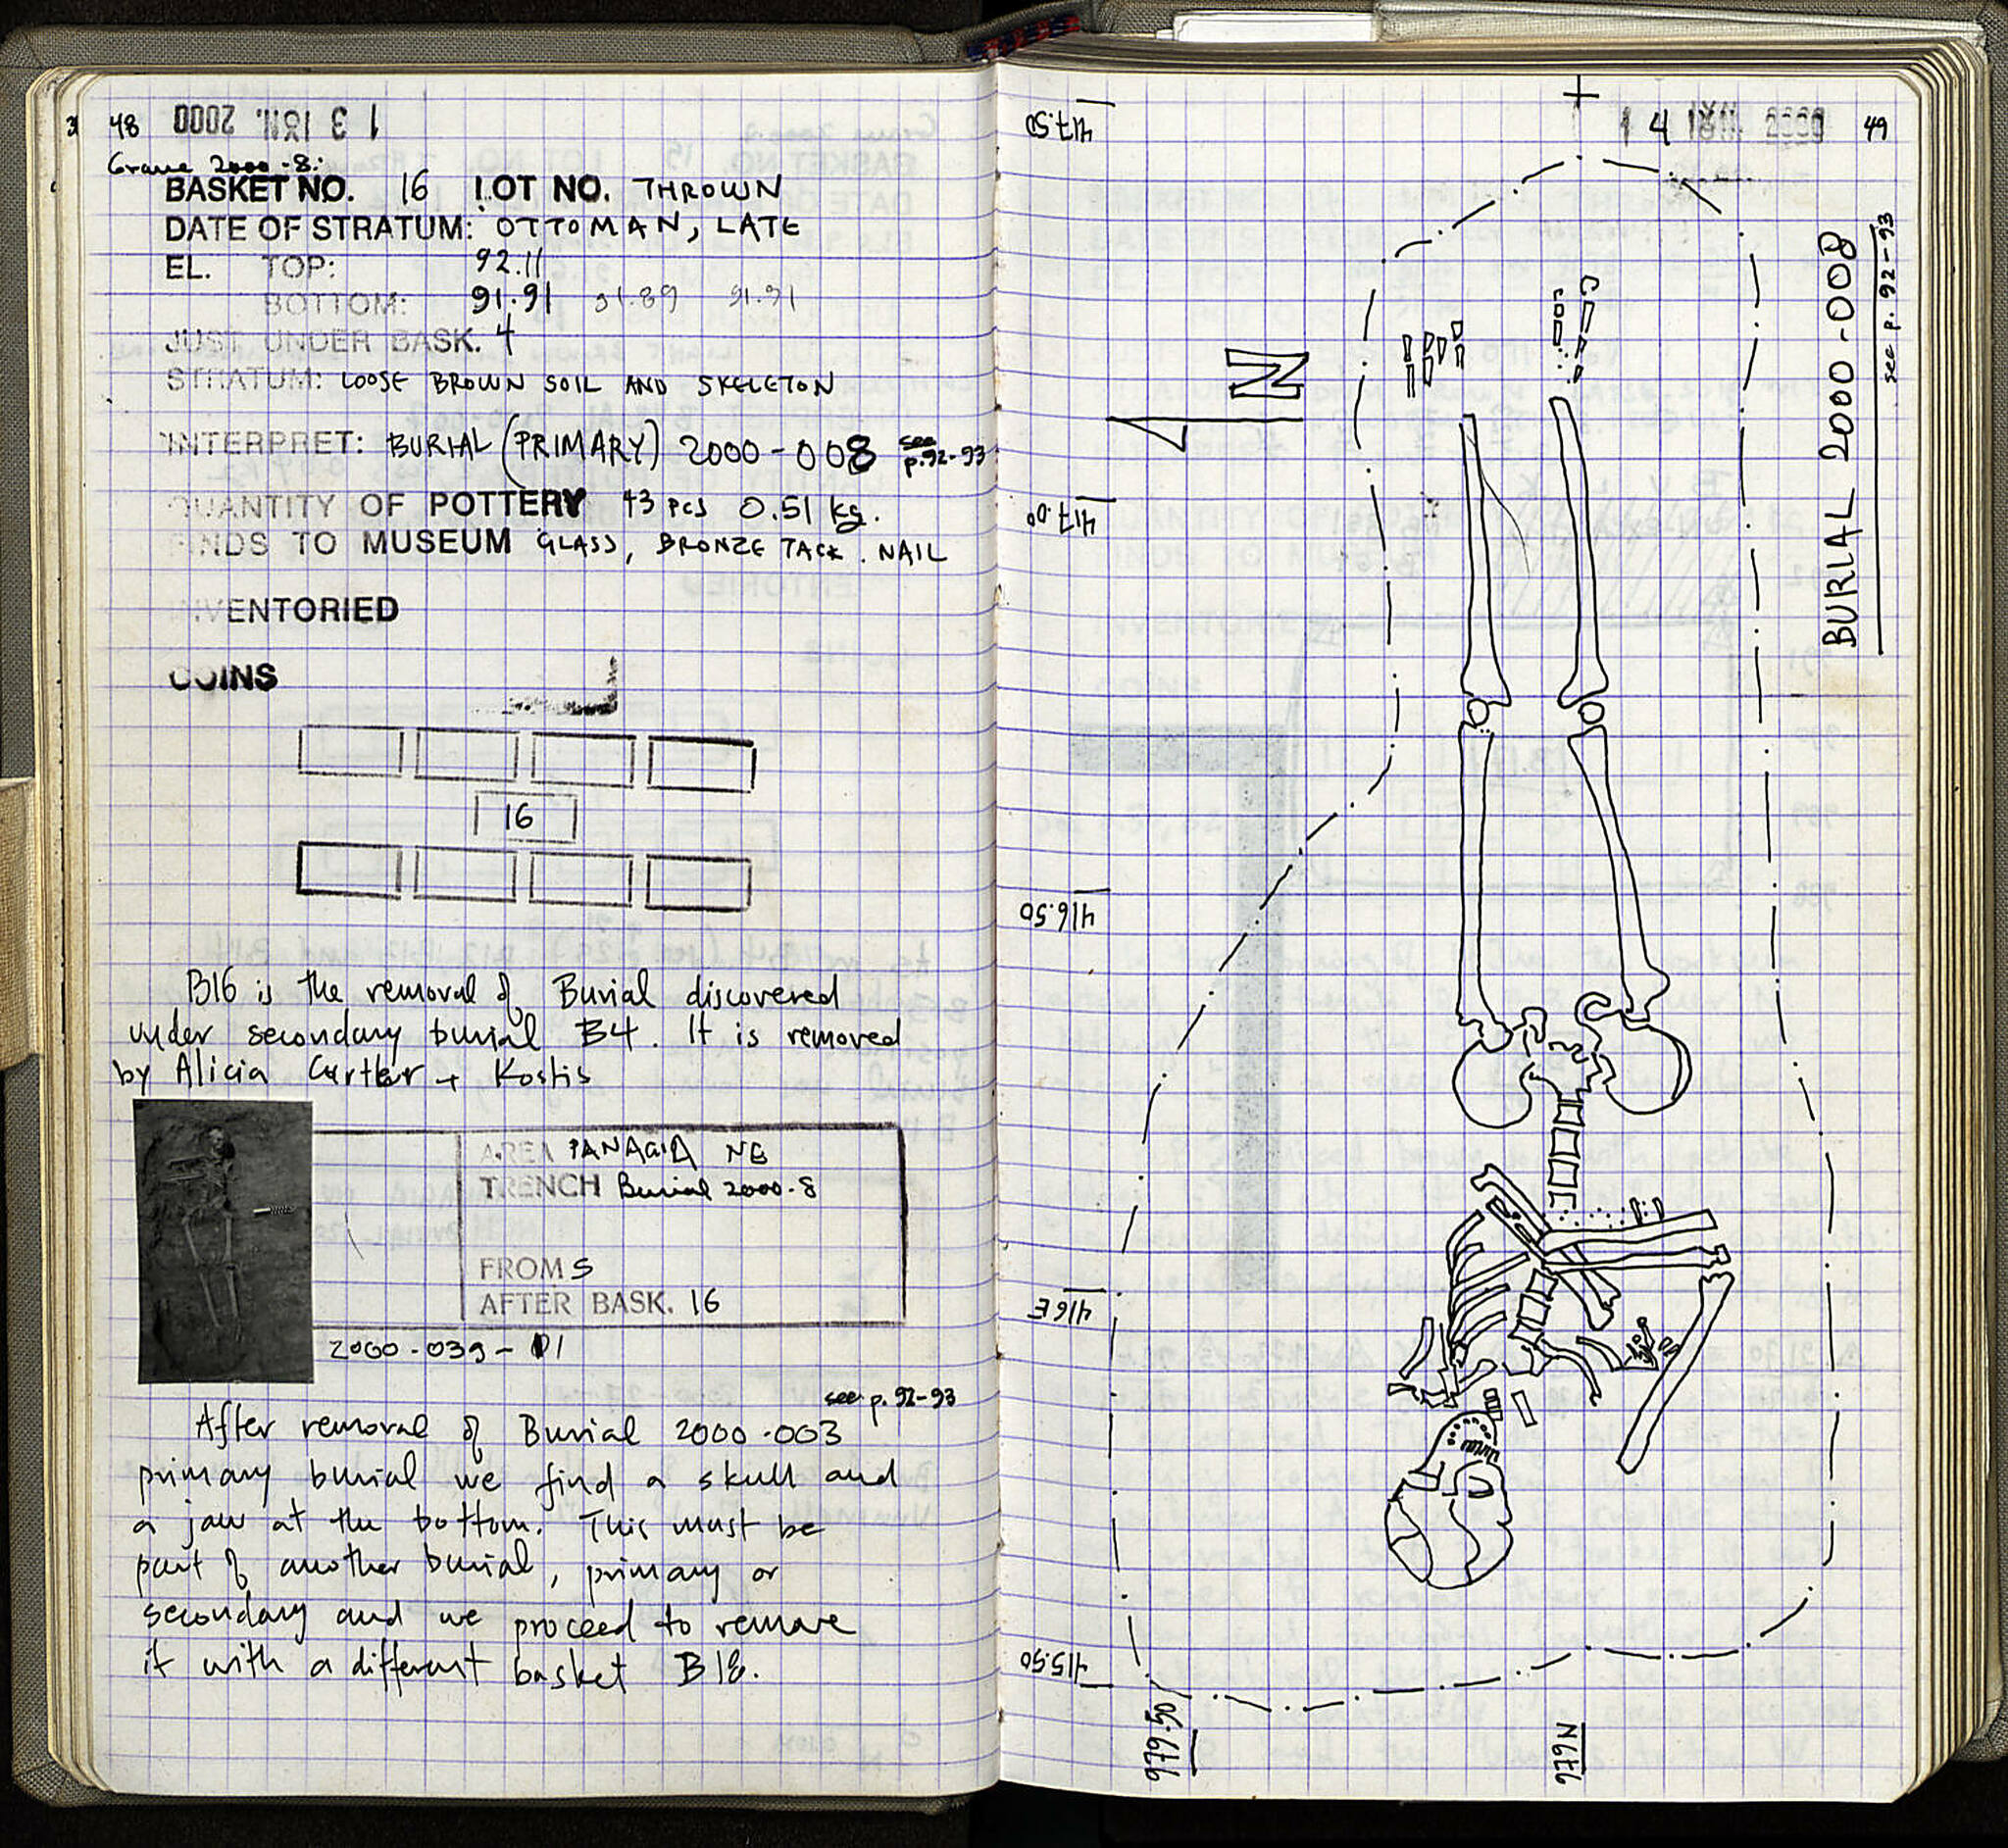 48 13 ΙΟΥΝ. 2000
Grave 2000-8:
BASKET NO. 16 LOT NO. THROWN
DATE OF STRATUM: OTTOMAN, LATE
EL. TOP: 92.11
BOTTOM: 91.91 91.89 91.91
JUST UNDER BASK. 4
STRATUM: LOOSE BROWN SOIL AND SKELETON
INTERPRET: BURIAL (PRIMARY) 2000-008 see p.92-93
QUANTITY OF POTTERY 43 pcs 0.51 kg.
FINDS TO MUSEUM GLASS, BRONZE TACK. NAIL
INVENTORIED
COINS
16
B16 is the removal of Burial discovered
under secondary burial B4. It is removed
by Alicia Carter + Kostis
AREA PANAGIA NE
TRENCH Burial 2000-8
FROM S
AFTER BASK. 16
2000-039-01
see p. 92-93
After removal of Burial 2000-003
primary burial we find a skull and
a jaw at the bottom. This must be
part of another burial, primary or
secondary and we proceed to remove
it with a different basket B18.
14 2000 49
BURIAL 2000-008
see p. 92-93
N
417.50
417.00
416.50
416E
415.50
979.50
979N